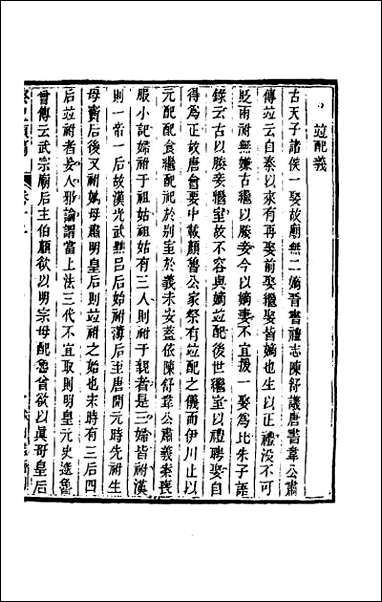 竝配義
古天子諸侯一娶故廟無二嫡晉書禮志陳舒議唐書韋公肅
傳竝云自秦以來有再娶前娶繼娶皆嫡也生以正禮没不可
貶兩祔無嫌古繼以媵妾今以嫡妻不宜援一娶爲比朱子語
錄云古以媵妾繼室故不容與嫡竝配後世繼室以禮聘娶自
得爲正故唐會要中載顏魯公家祭有竝配之儀而伊川止以
元配配食繼配祀於别室於義未安蓋依陳舒韋公肅義案喪
服小記婦祔于祖姑祖姑有三人則祔于親者是三婦皆祔漢
則一帝一后故漢光武黜吕后始祔薄后至唐開元時先祔生
母竇后後又祔嫡母肅明皇后則竝祔之始也末時有三后四
后竝祔者妾人邪論謂當上法三代不宜取則明皇元史逯魯
曾傳云武宗廟后主伯顏欲以明宗母配魯曾欲以眞哥皇后